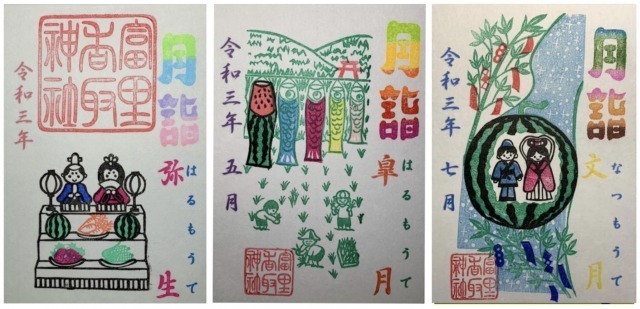 月詣
はるもうで
弥生
富里
香取
神社
令和三年
月詣
はるもうで
皐月
令和三年 五月
富里
香取
神社
月詣
なつもうで
文月
令和三年 七月
富里
香取
神社